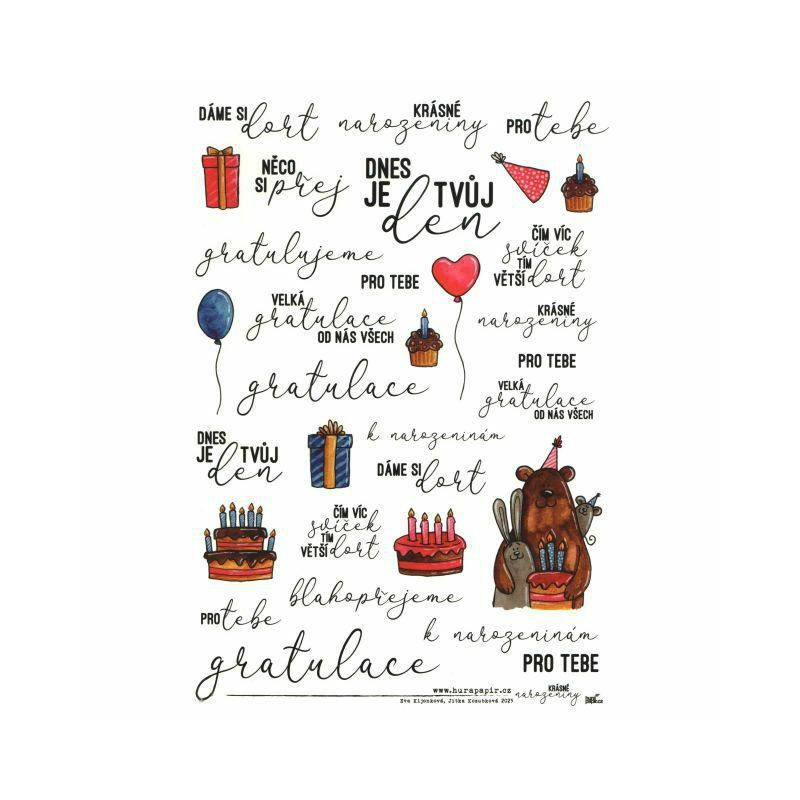 DÁME SI dort
KRÁSNÉ
narozeniny
PRO tebe
NĚCO
SI přej
DNES
JE TVŮJ
den
gratulujeme
ČÍM VÍC
svíček
TÍM
VĚTŠÍ dort
PRO TEBE
VELKÁ
gratulace
OD NÁS VŠECH
KRÁSNÉ
narozeniny
PRO TEBE
gratulace
VELKÁ
gratulace
OD NÁS VŠECH
DNES
JE TVŮJ
den
k narozeninám
DÁME SI dort
ČÍM VÍC
svíček
TÍM
VĚTŠÍ dort
blahopřejeme
PRO tebe
k narozeninám
gratulace
PRO TEBE
www.hurapapir.cz
KRÁSNÉ
narozeniny
Eva Kijonková, Jitka Kosubková 2025